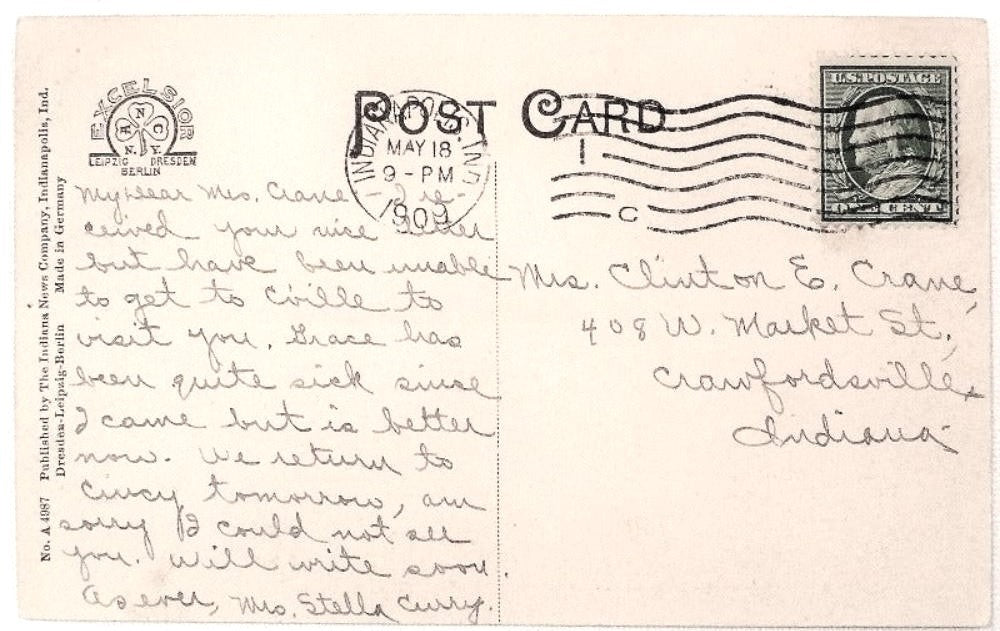 No. A 4987 Published by The Indiana News Company, Indianapolis, Ind.
Dresden-Leipzig-Berlin Made in Germany
EXCELSIOR
A N C
N.Y.
LEIPZIG DRESDEN
BERLIN
POST CARD
INDIANAPOLIS, IND
MAY 18
9 - PM
1909
1
C
U.S. POSTAGE
ONE CENT
My dear Mrs. Crane I re-
ceived your nice letter
but have been unable
to get to C'ville to
visit you. Grace has
been quite sick since
I came but is better
now. We return to
Cincy tomorrow, am
sorry I could not see
you. Will write soon.
As ever, Mrs. Stella Curry.
Mrs. Clinton E. Crane,
408 W. Market St.,
Crawfordsville,
Indiana